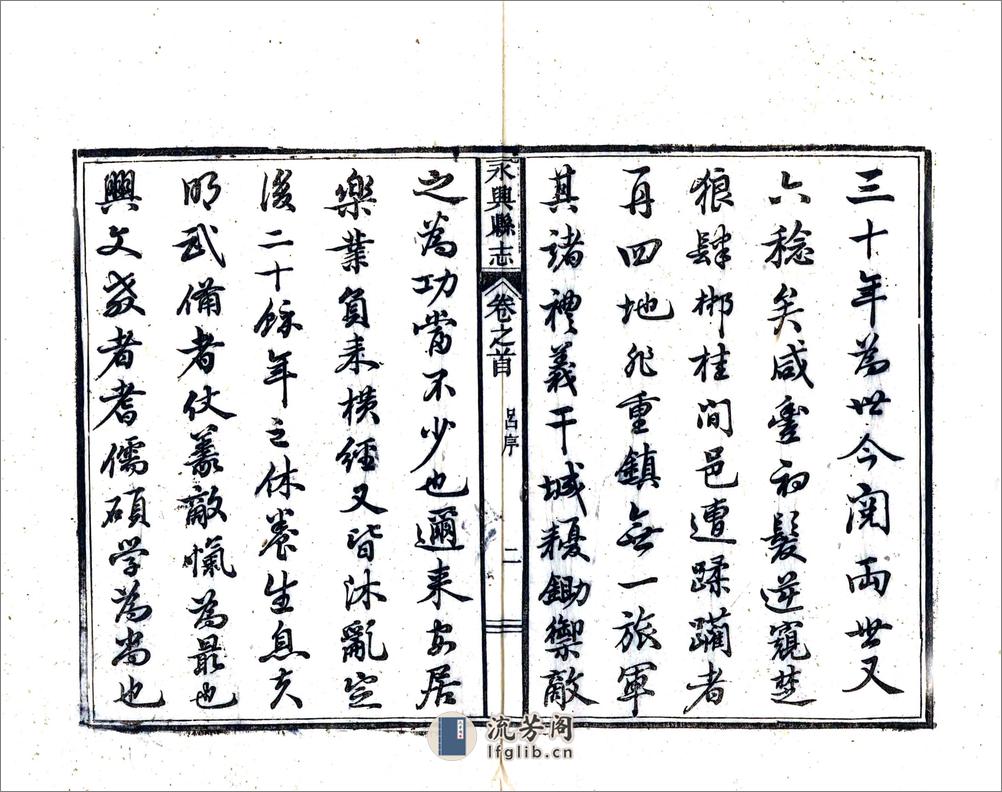 三十年為世今閱兩世又
六稔矣咸豐初髮逆竄楚
狼肆郴桂間邑遭蹂躪者
再四地非重鎮無一旅軍
其諸禮義干城耰鋤禦敵
永興縣志
卷之首
呂序
二
之為功當不少也邇來安居
樂業負耒橫經又皆沐亂定
後二十餘年之休養生息夫
明武備者仗義敵愾為最也
興文教者耆儒碩学為尚也
流芳阁
lfglib.cn